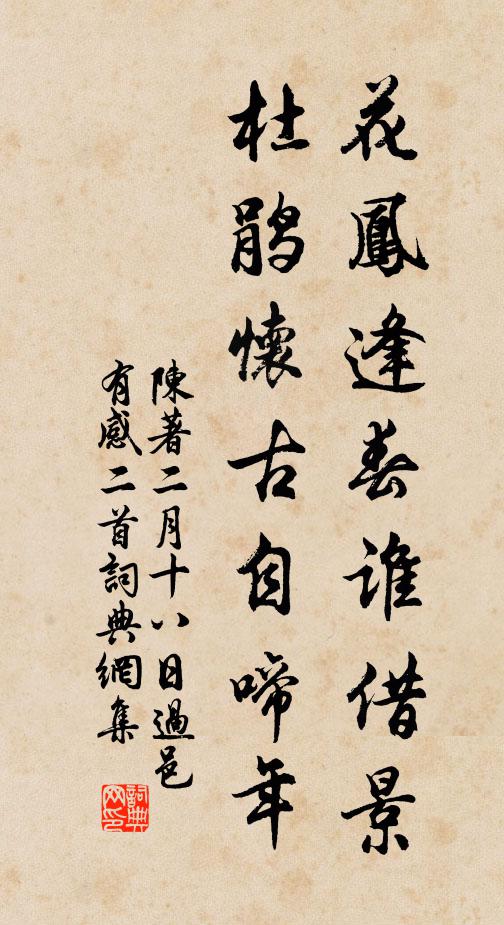 花鳳逢春誰借景
杜鵑懷古自啼年
陳著二月十八日過邑
有感二首詞典網集
詞典網印